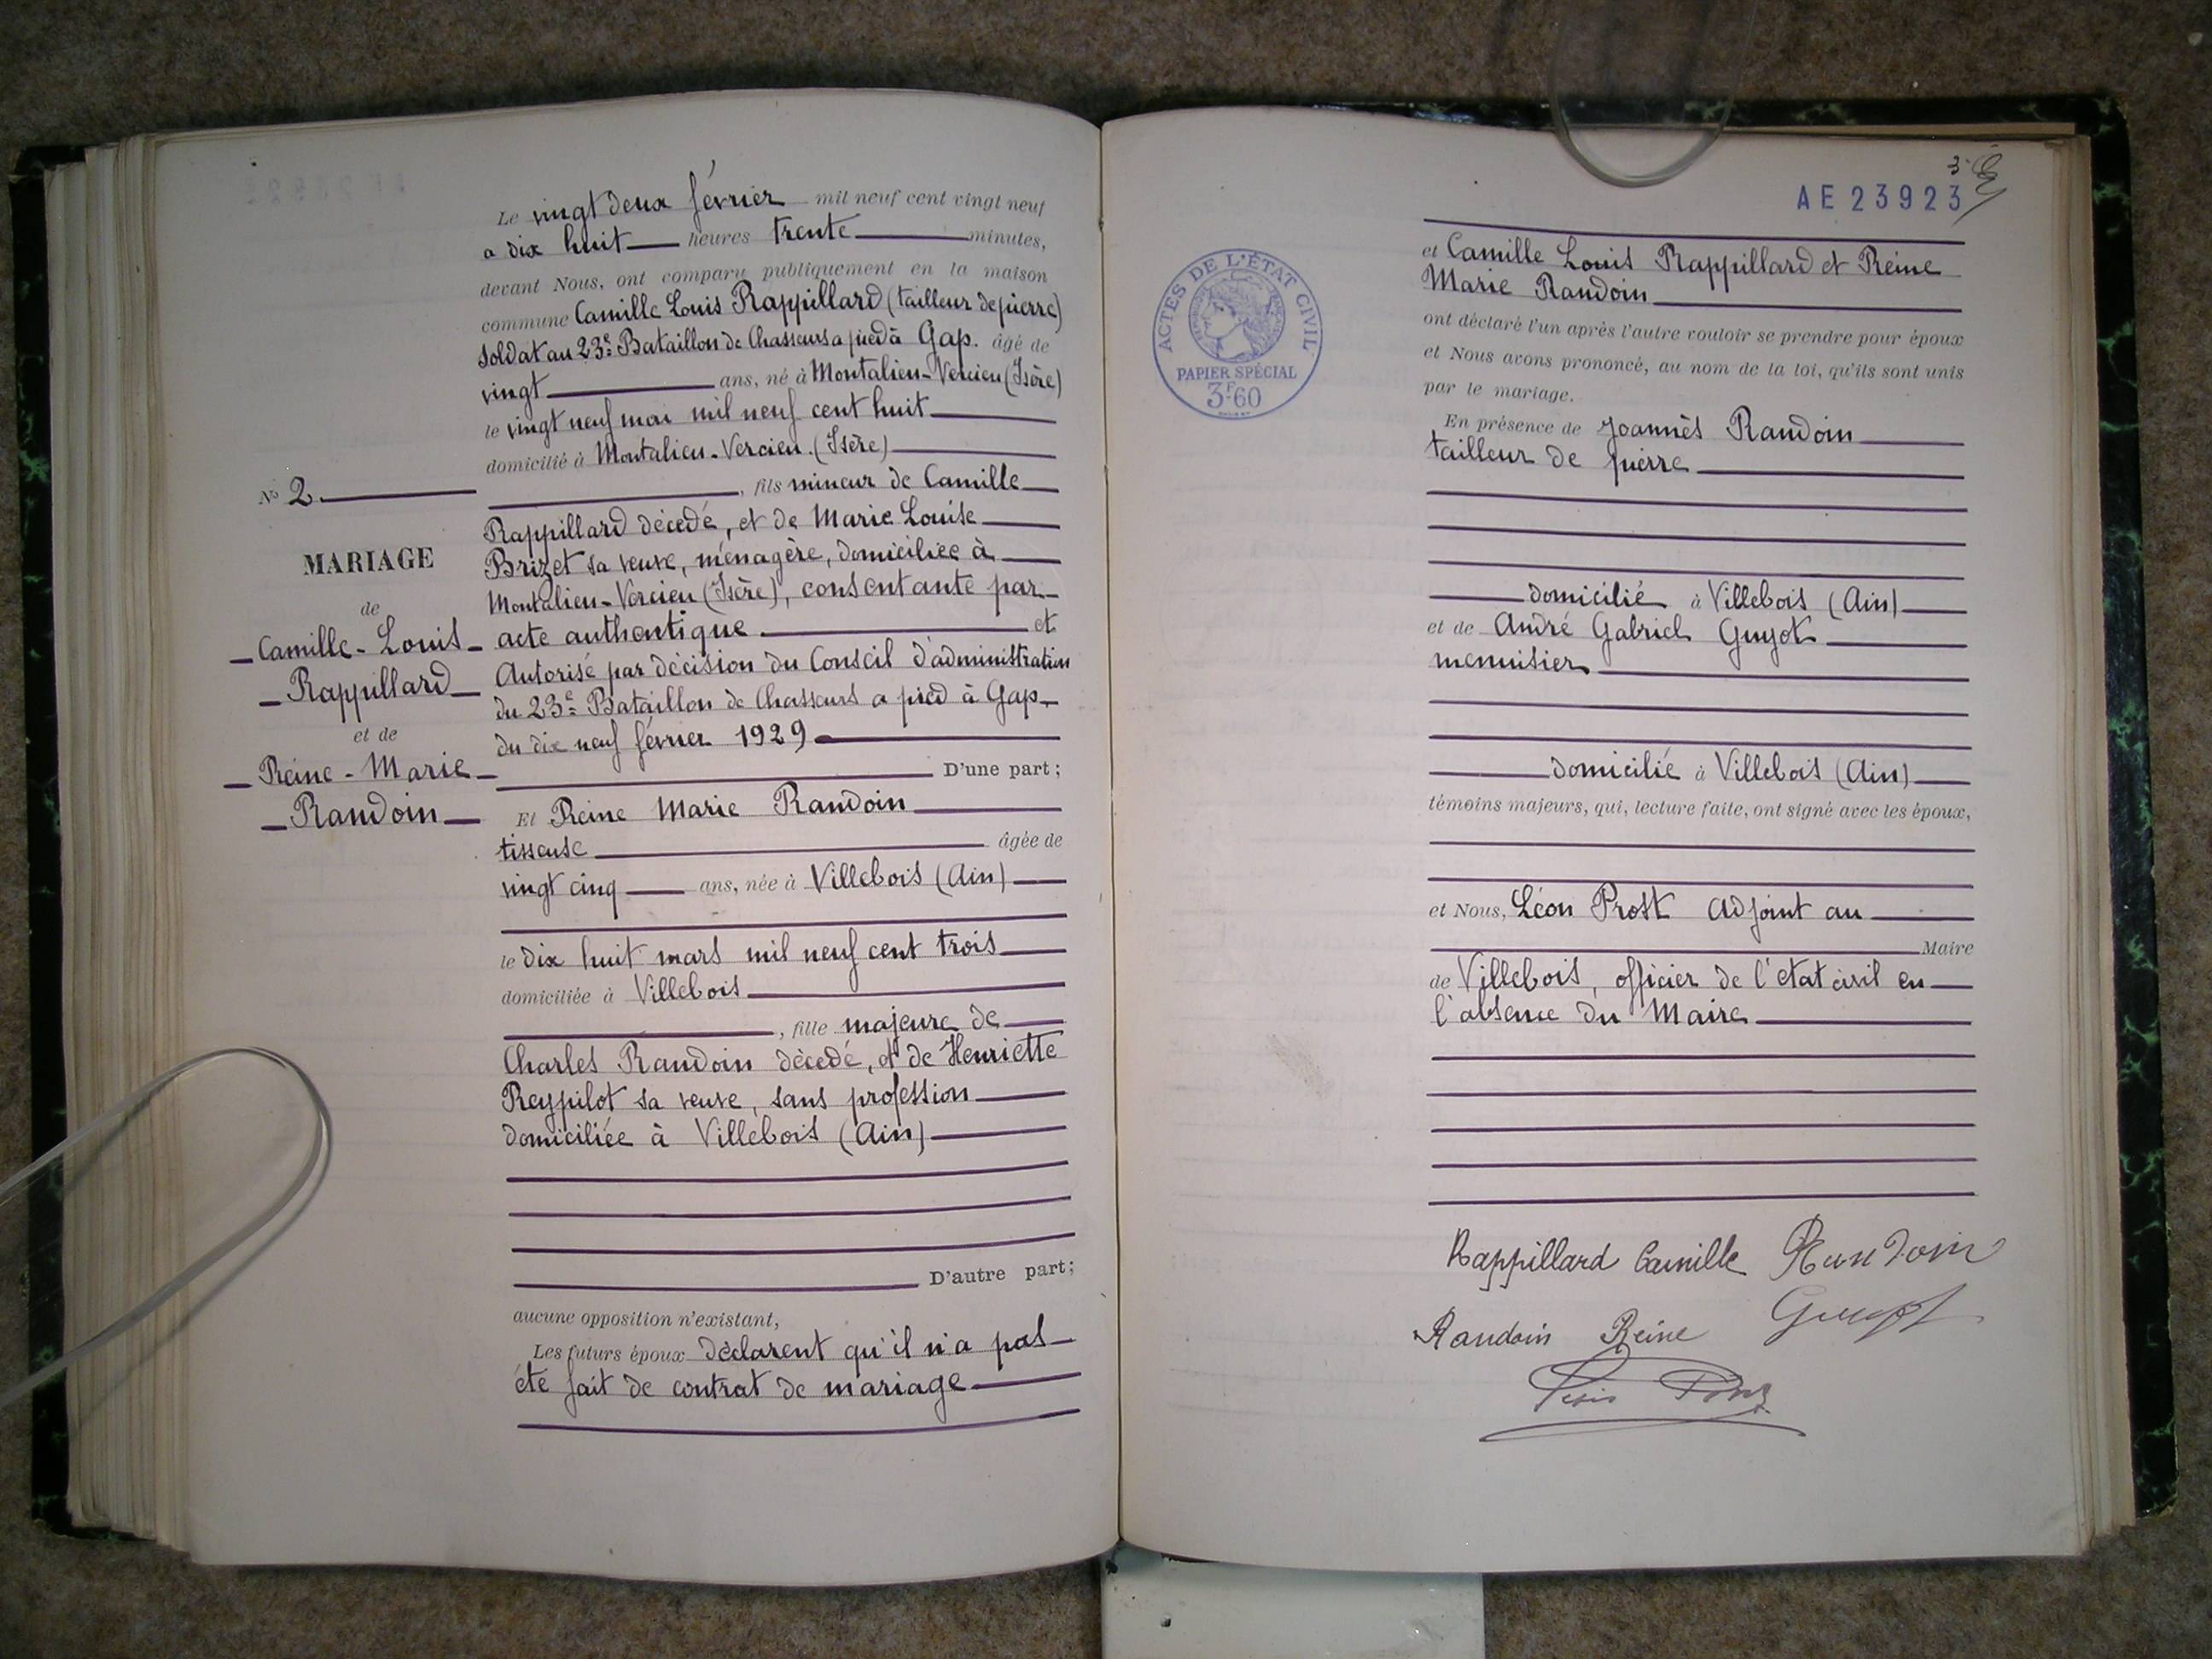 Le vingt deux février mil neuf cent vingt neuf
a dix huit heures trente minutes,
devant Nous, ont comparu publiquement en la maison
commune Camille Louis Rappillard (tailleur de pierre)
soldat au 23e Bataillon de Chasseurs a pied à Gap. âgé de
vingt ans, né à Montalieu-Vercieu (Isère)
le vingt neuf mai mil neuf cent huit
domicilié à Montalieu-Vercieu. (Isère)
, fils mineur de Camille
Rappillard décedé, et de Marie Louise
Brizet sa veuve, ménagère, domiciliée à
Montalieu-Vercieu (Isère), consentante par
acte authentique et
Autorisé par décision du Conseil d'administration
du 23e Bataillon de Chasseurs a pied à Gap
du dix neuf février 1929
D'une part;
Et Reine Marie Randoin
tisseuse âgée de
vingt cinq ans, née à Villebois (Ain)
le dix huit mars mil neuf cent trois
domiciliée à Villebois
, fille majeure de
Charles Randoin décedé, et de Henriette
Reypilot sa veuve, sans profession
domiciliée à Villebois (Ain)
D'autre part;
aucune opposition n'existant,
Les futurs époux déclarent qu'il n'a pas
été fait de contrat de mariage
No 2
MARIAGE
de
Camille-Louis
Rappillard
et de
Reine-Marie
Randoin
3
AE 23923
ACTES DE L'ÉTAT CIVIL
RÉPUBLIQUE FRANÇAISE
PAPIER SPÉCIAL
3F60
et Camille Louis Rappillard et Reine
Marie Randoin
ont déclaré l'un après l'autre vouloir se prendre pour époux
et Nous avons prononcé, au nom de la loi, qu'ils sont unis
par le mariage.
En présence de Joannès Randoin
tailleur de pierre
domicilié à Villebois (Ain)
et de André Gabriel Guyot
menuisier
domicilié à Villebois (Ain)
témoins majeurs, qui, lecture faite, ont signé avec les époux,
et Nous, Léon Prost Adjoint au
Maire
de Villebois, officier de l'etat civil en
l'absence du Maire
Rappillard Camille Randoin
Randoin Reine Guyot